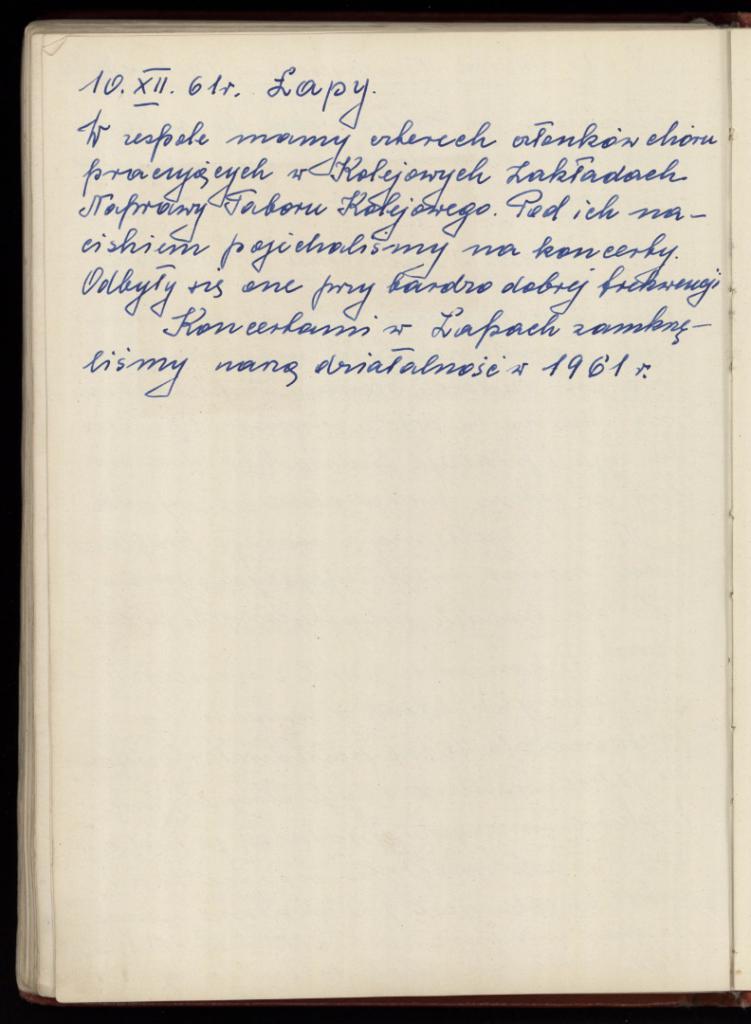 10. XII. 61r. Łapy.
W zespole mamy czterech członków chóru
pracujących w Kolejowych Zakładach
Naprawy Taboru Kolejowego. Pod ich na-
ciskiem pojechaliśmy na koncerty.
Odbyły się one przy bardzo dobrej frekwencji
Koncertami w Łapach zamknę-
liśmy naszą działalność w 1961 r.